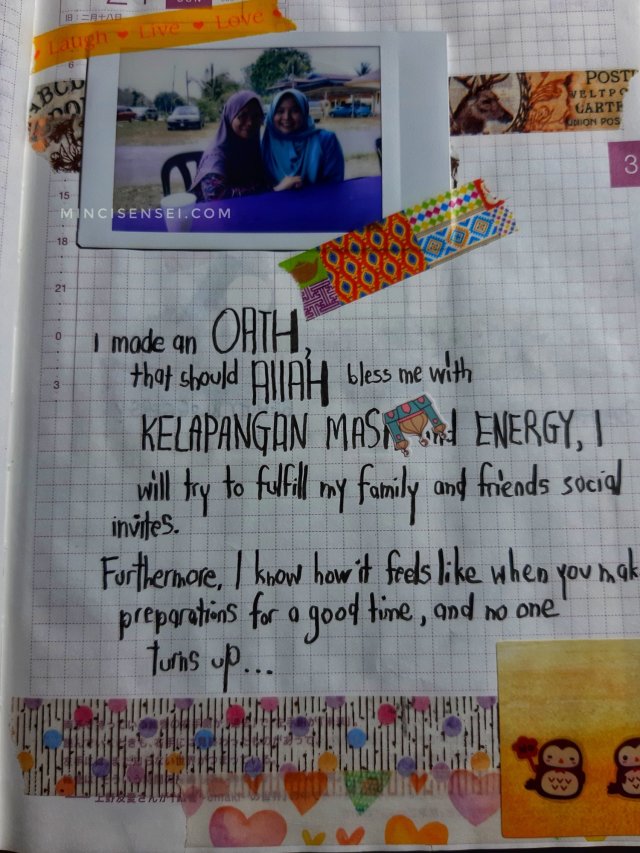 旧:二月十八日
Laugh ♥ Live ♥ Love
ABCD
POST
VELTPO
CARTE
UNION POS
6
3
15
MINCISENSEI.COM
18
21
0
3
I made an OATH,
that should AllAH bless me with
KELAPANGAN and ENERGY, I
will try to fulfill my family and friends social
invites.
Furthermore, I know how it feels like when you mak
preparations for a good time, and no one
turns up...